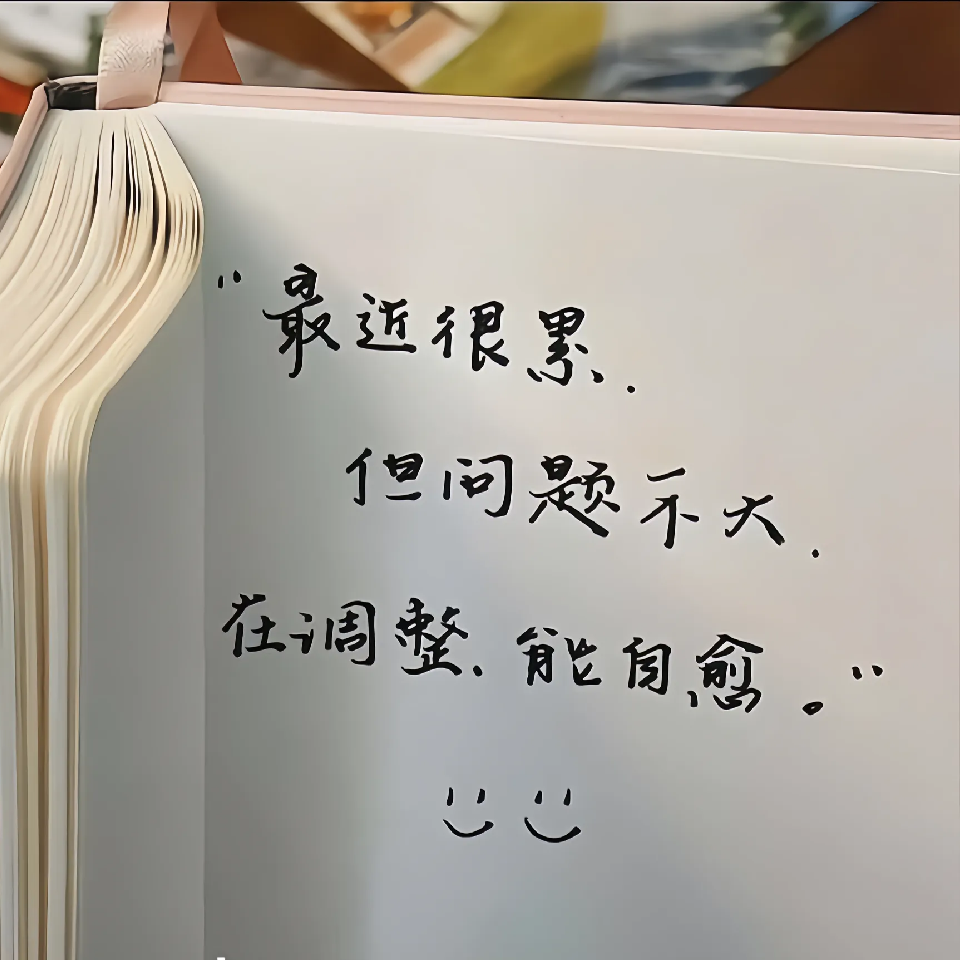 “最近很累.
但问题不大.
在调整.能自愈。”